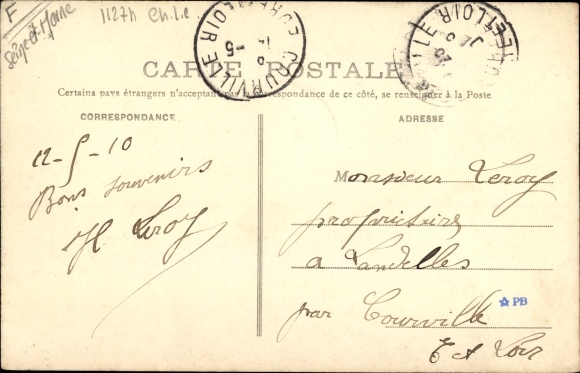 F
Seine et Marne
COURVILLE
EURE-ET-LOIR
EURE-ET-LOIR
CARTE POSTALE
Certains pays étrangers n'acceptant pas la correspondance de ce côté, se renseigner à la Poste
CORRESPONDANCE
12-5-10
Bons souvenirs
H Leroy
ADRESSE
Monsieur Leroy
propriétaire
a Landelles
par Courville
PB
E et Loir